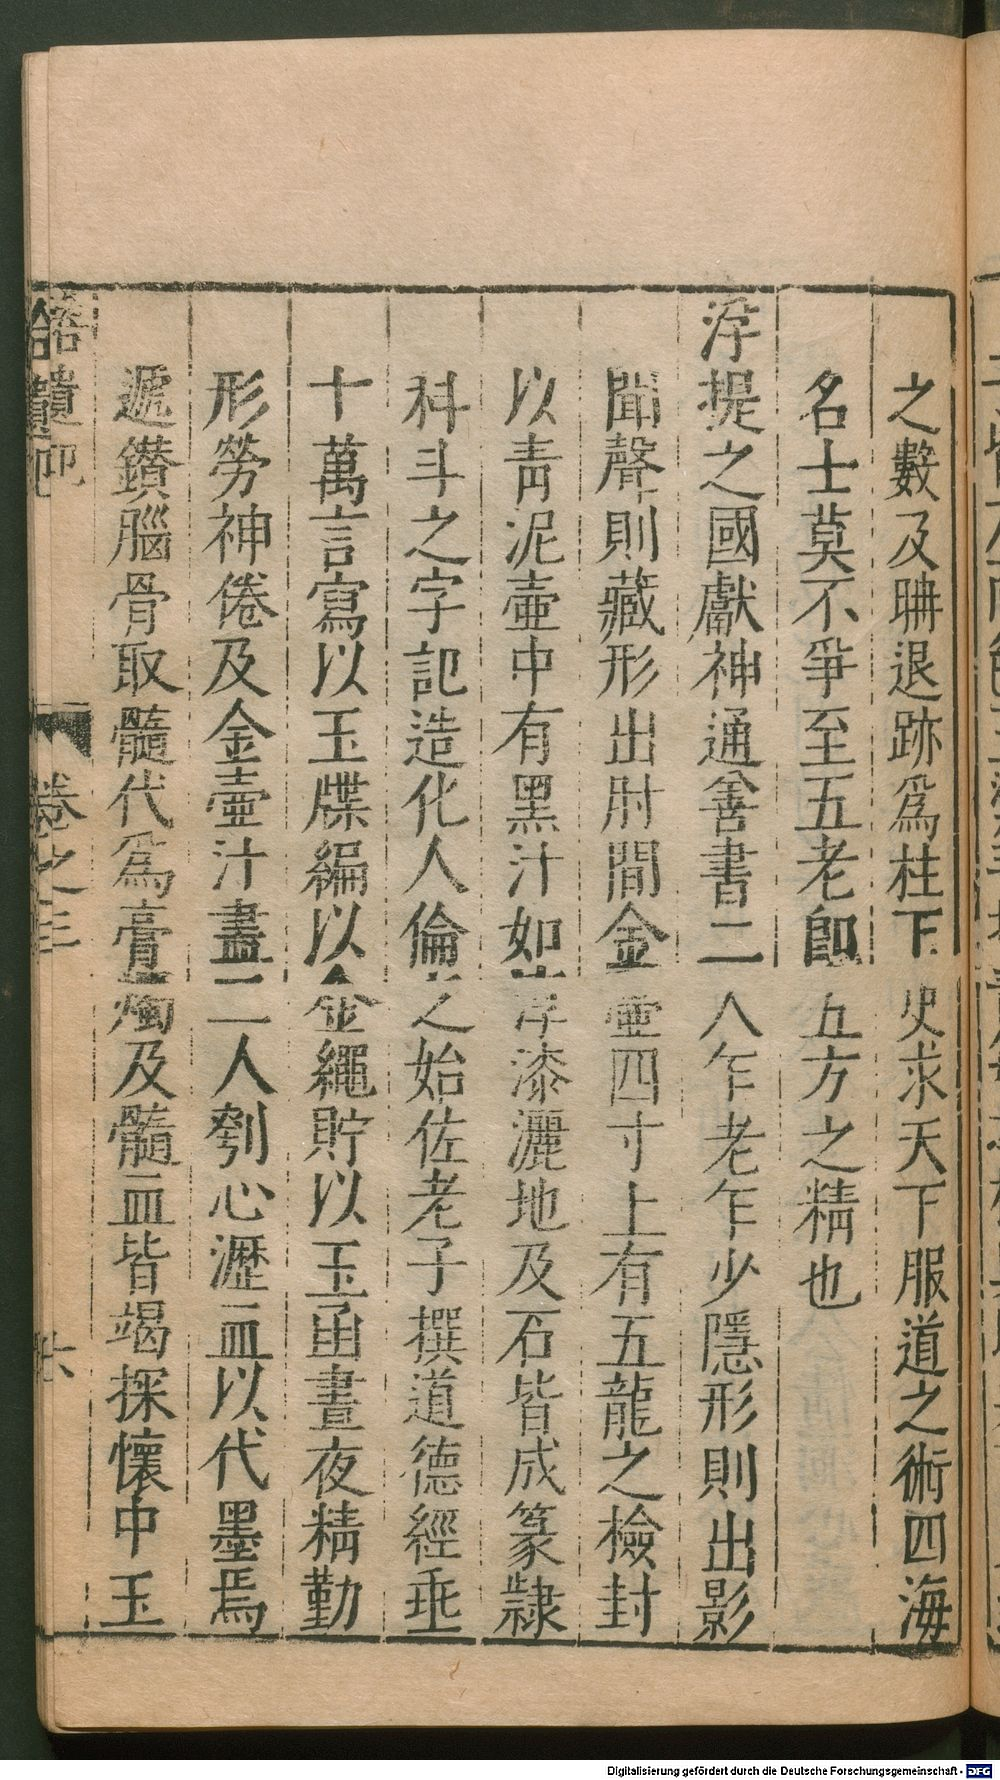 之數及聃退跡爲柱下史求天下服道之術四海
名士莫不爭至五老卽五方之精也
浮提之國獻神通善書二人乍老乍少隱形則出影
聞聲則藏形出肘間金壺四寸上有五龍之檢封
以青泥壺中有黑汁如淳漆灑地及石皆成篆隷
科斗之字記造化人倫之始佐老子撰道德經垂
十萬言寫以玉牒編以金繩貯以玉函晝夜精勤
形勞神倦及金壺汁盡二人刳心瀝血以代墨焉
遞鑽腦骨取髓代爲膏燭及髓血皆竭探懷中玉
拾遺記
卷之三
六
Digitalisierung gefördert durch die Deutsche Forschungsgemeinschaft - DFG